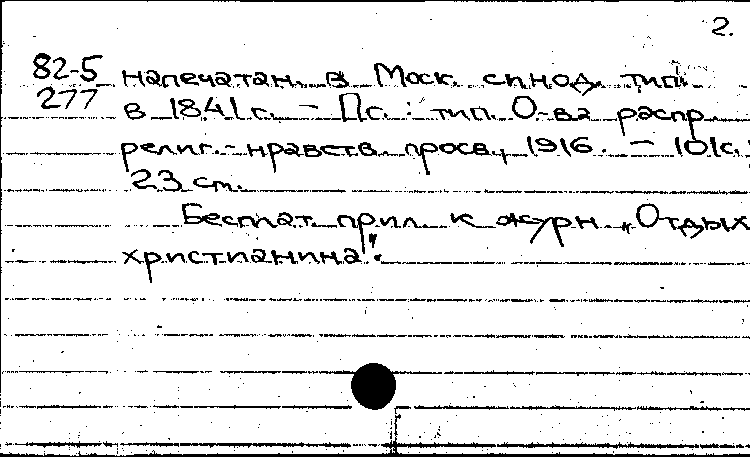 2.
82-5 напечатан. в Моск. синод. тип.
277 в 1841 г. – Пг. : тип. О-ва распр.
религ.-нравств. просв., 1916. – 101 с. ;
23 см.
Бесплат. прил. к журн. „Отдых
христианина".